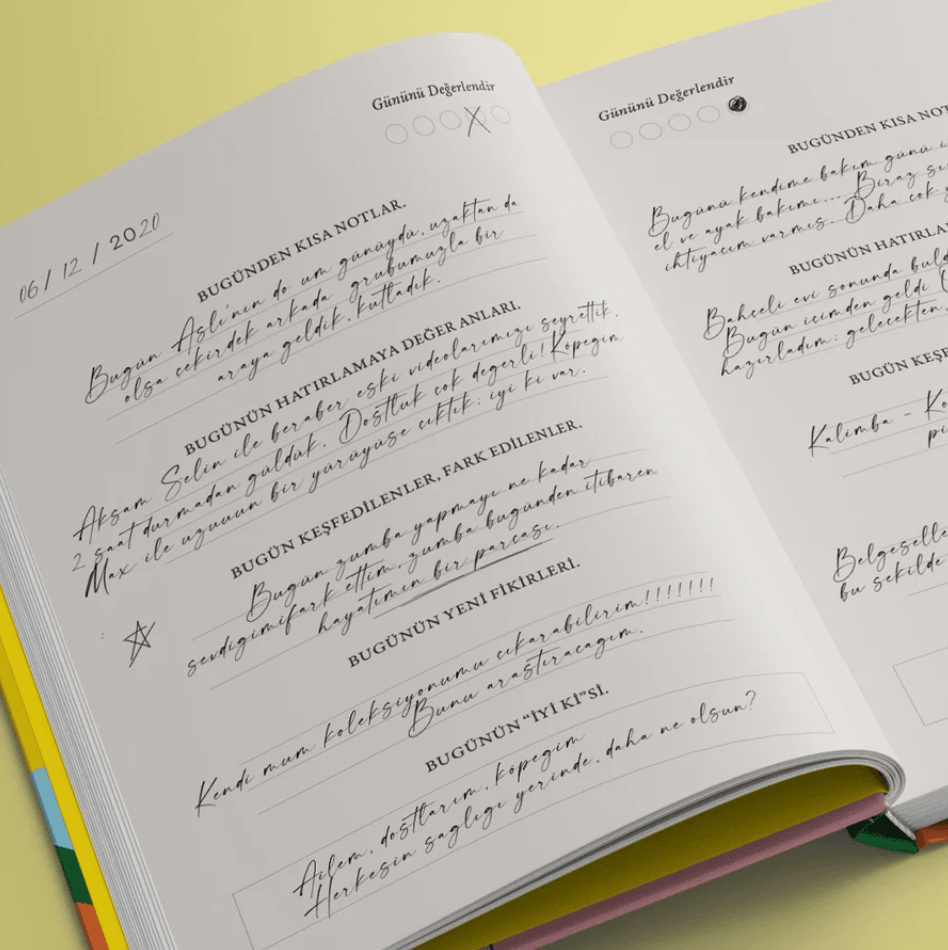 Gününü Değerlendir
06 / 12 / 2020
BUGÜNDEN KISA NOTLAR.
Bugün Aslı'nın do um günüydü, uzaktan da
olsa cekirdek arkada grubumuzla bir
araya geldik, kutladık.
BUGÜNÜN HATIRLAMAYA DEĞER ANLARI.
Aksam Selin ile beraber eski videolarımızı seyrettik.
2 saat durmadan güldük. Dosttluk cok degerli! Kopegim
Max ile uzuuun bir yürüyüse cıktık: iyi ki var.
BUGÜN KEŞFEDİLENLER, FARK EDİLENLER.
Bugün zumba yapmayı ne kadar
sevdigimifark ettim, zumba bugünden itibaren
hayatımın bir parcası.
BUGÜNÜN YENİ FİKİRLERİ.
Kendi mum koleksiyonumu cıkarabilirim!!!!!!!
Bunu arastıracagım.
BUGÜNÜN “İYİ Kİ”Sİ.
Ailem, dosttlarım, köpegim
Herkesin saglıgı yerinde, daha ne olsun?
Gününü Değerlendir
BUGÜNDEN KISA NOT
Bugünü kendime bakım günü i
el ve ayak bakımı... Biraz
ihtiyacım varmıs. Daha cok
BUGÜNÜN HATIRLA
Bahceli evi sonunda buld
Bugün icimden geldi
hazırladım: gelecekten
BUGÜN KEŞF
Kalimba - Ko
pi
Belgeselle
bu sekilde